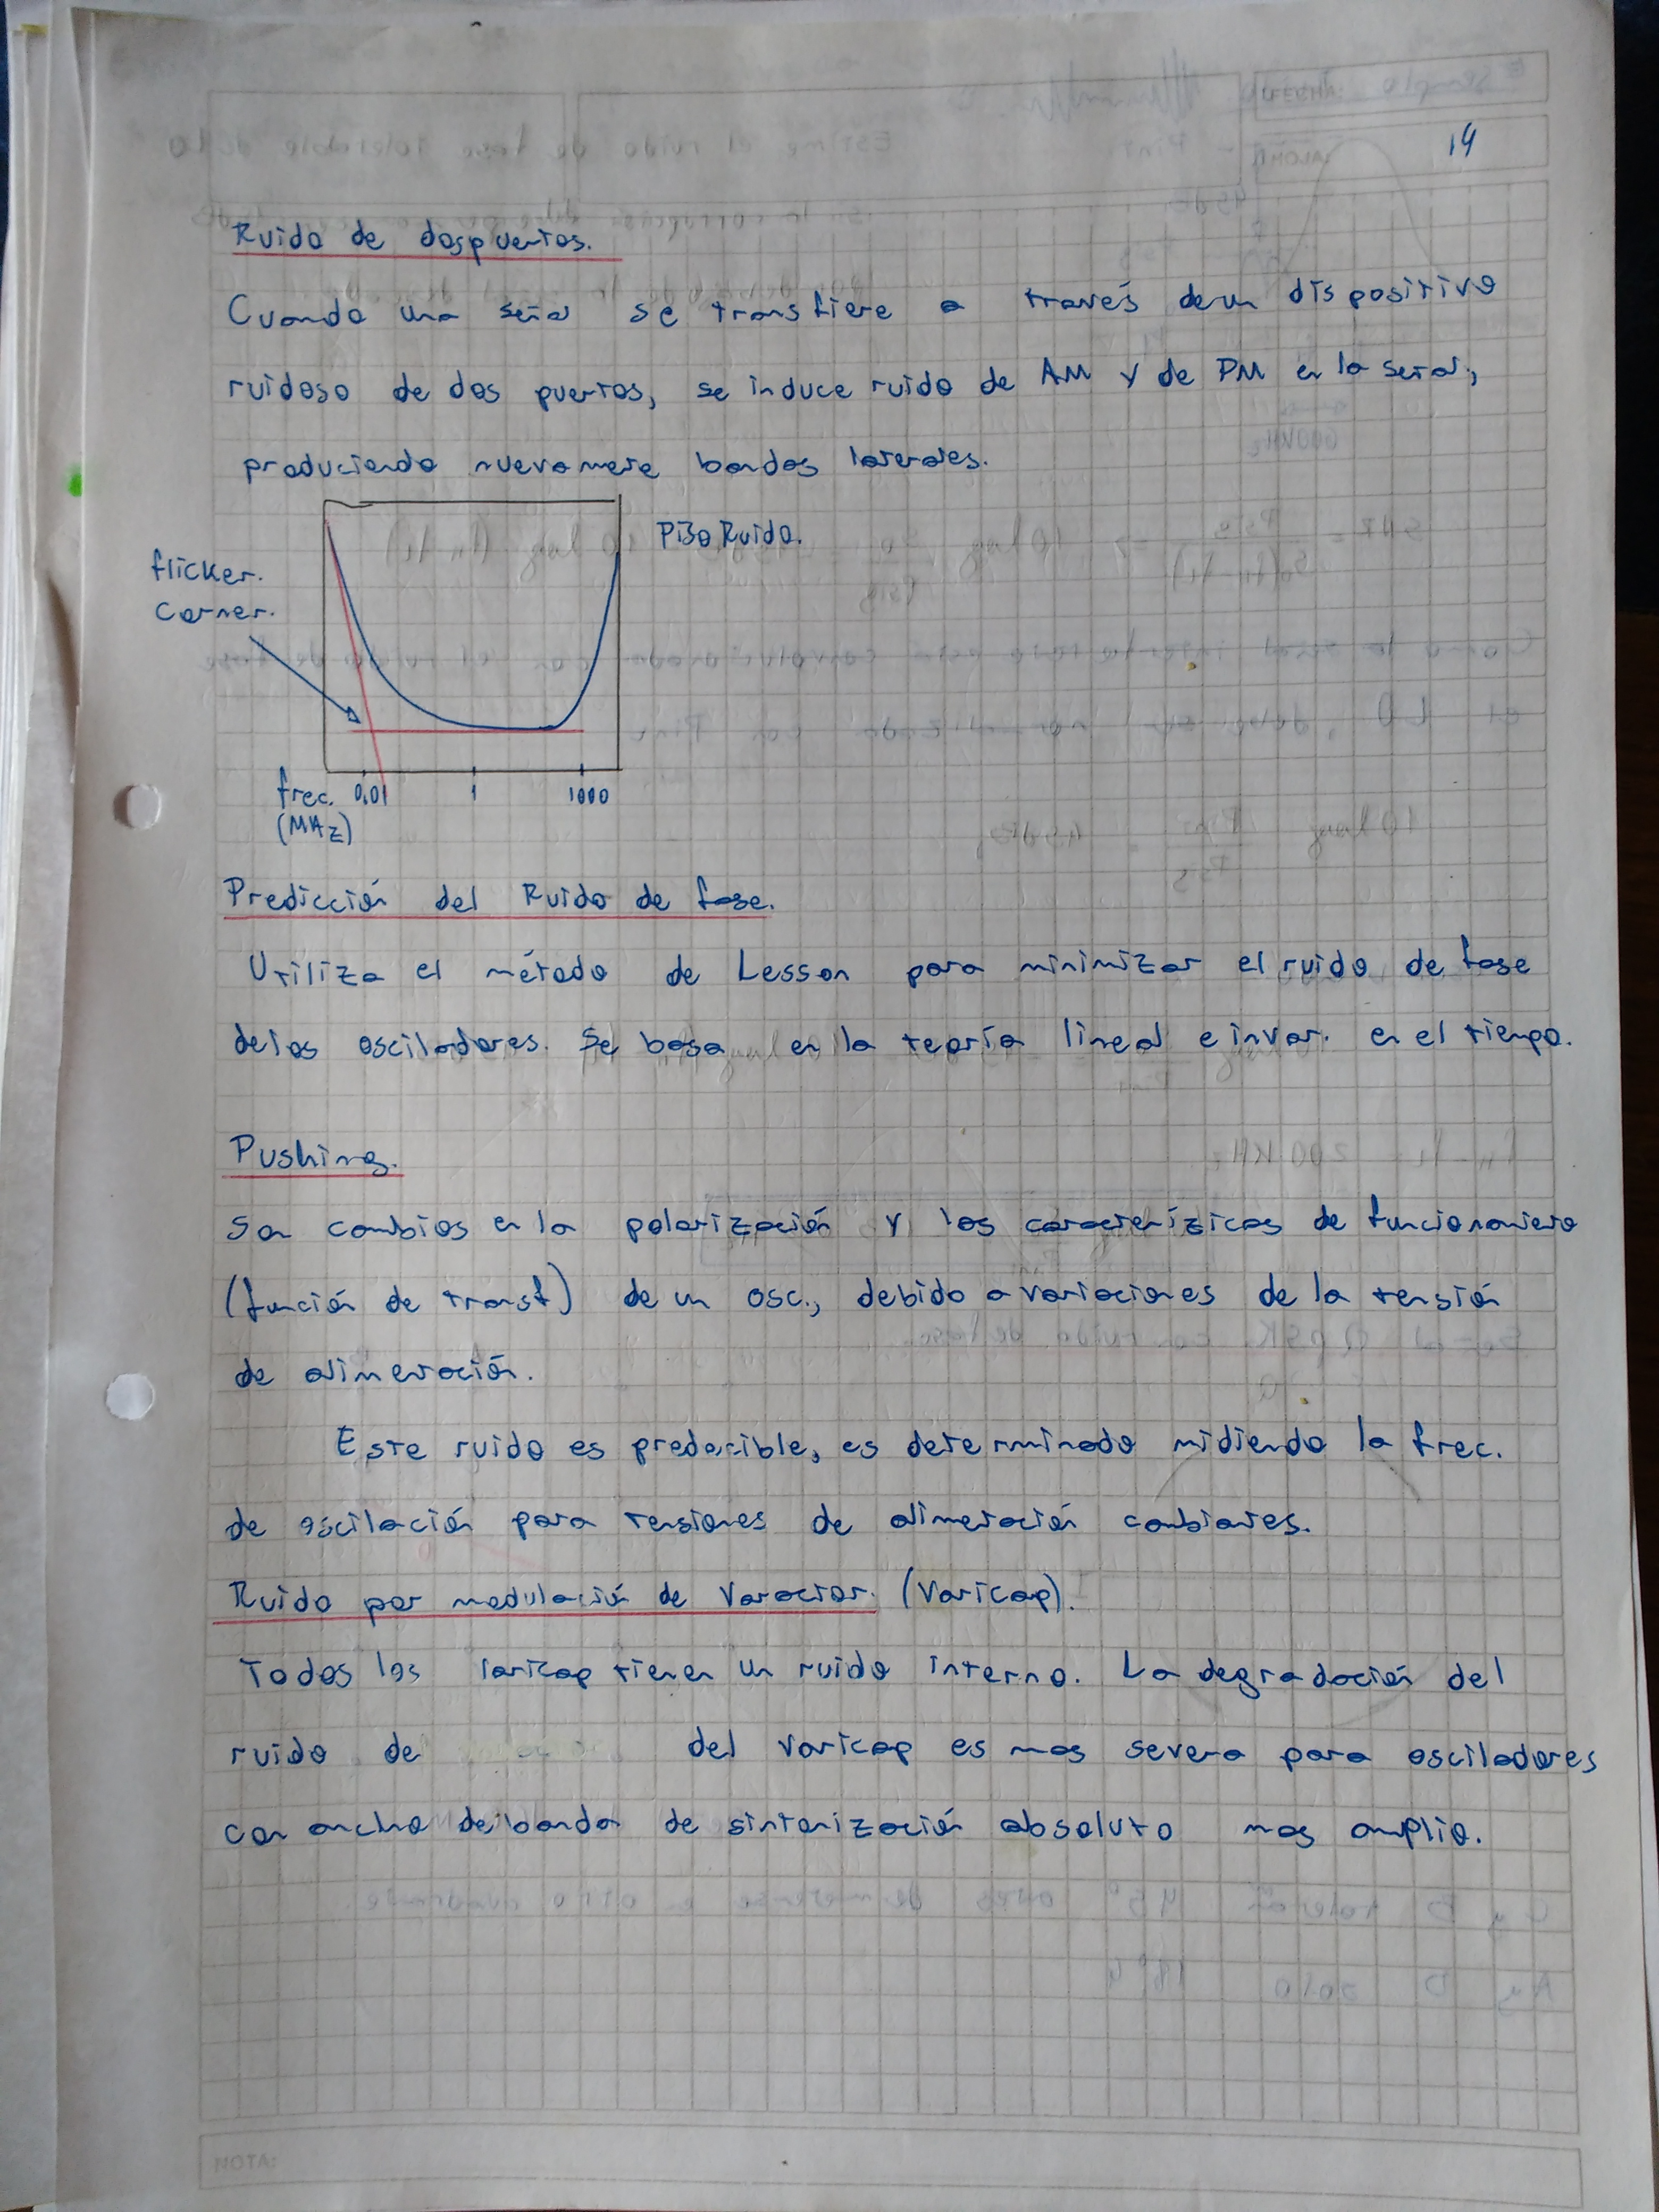 14
Ruido de dos puertos.
Cuando una señal se transfiere a través de un dispositivo
ruidoso de dos puertos, se induce ruido de AM y de PM en la señal,
produciendo nuevamente bandas laterales.
Piso Ruido.
flicker.
corner.
frec. 0,01 1 1000
(MHz)
Predicción del Ruido de fase.
Utiliza el método de Lesson para minimizar el ruido de fase
de los osciladores. Se basa en la teoría lineal e invar. en el tiempo.
Pushing.
Son cambios en la polarización y las caracterízicas de funcionamiento
(función de transf) de un osc., debido a variaciones de la tensión
de alimentación.
Este ruido es predecible, es determinado midiendo la frec.
de oscilación para tensiones de alimentación cambiantes.
Ruido por modulación de Varactor. (Varicap).
Todos los varicap tienen un ruido interno. La degradación del
ruido de del varicap es mas severa para osciladores
con ancho de banda de sintonización absoluto mas amplio.